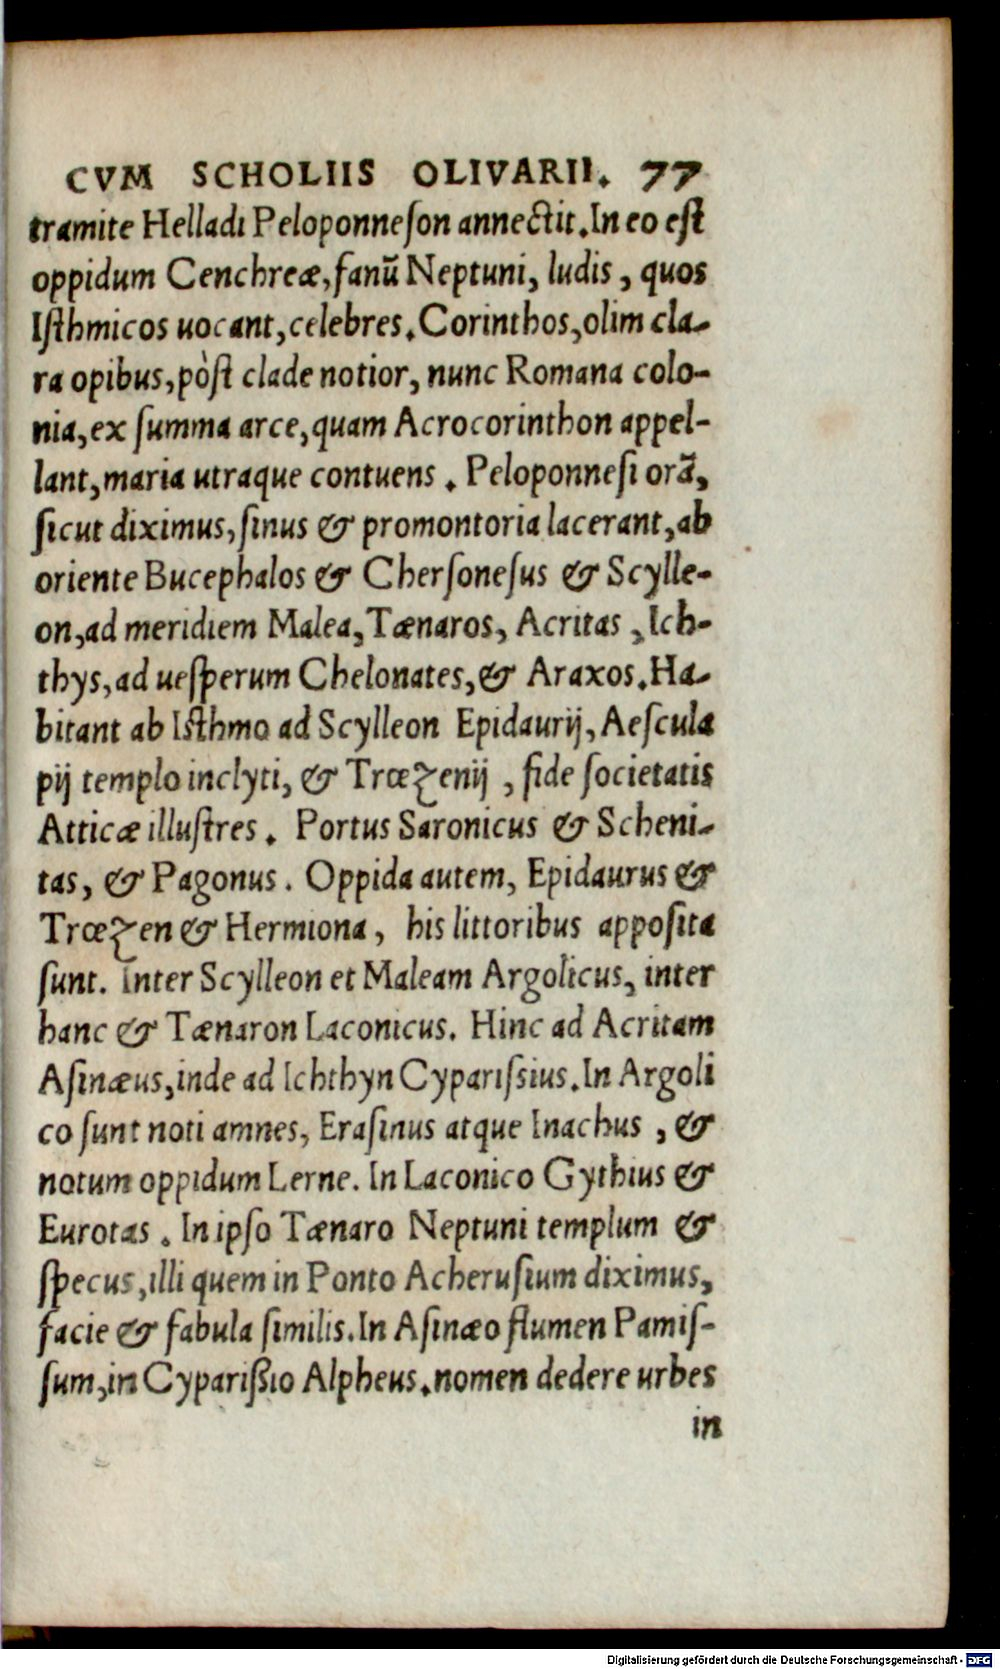 CVM SCHOLIIS OLIVARII. 77
tramite Helladi Peloponneſon annectit. In eo eſt
oppidum Cenchreæ, fanũ Neptuni, ludis, quos
Iſthmicos uocant, celebres. Corinthos, olim cla-
ra opibus, pòſt clade notior, nunc Romana colo-
nia, ex ſumma arce, quam Acrocorinthon appel-
lant, maria utraque contuens. Peloponneſi orã,
ſicut diximus, ſinus & promontoria lacerant, ab
oriente Bucephalos & Cherſoneſus & Scylle-
on, ad meridiem Malea, Tænaros, Acritas, Ich-
thys, ad ueſperum Chelonates, & Araxos. Ha-
bitant ab Iſthmo ad Scylleon Epidaurij, Aeſcula
pij templo inclyti, & Trœzenij, fide ſocietatis
Atticæ illuſtres. Portus Saronicus & Scheni-
tas, & Pagonus. Oppida autem, Epidaurus &
Trœzen & Hermiona, his littoribus appoſita
ſunt. Inter Scylleon et Maleam Argolicus, inter
hanc & Tænaron Laconicus. Hinc ad Acritam
Aſinæus, inde ad Ichthyn Cypariſsius. In Argoli
co ſunt noti amnes, Eraſinus atque Inachus, &
notum oppidum Lerne. In Laconico Gythius &
Eurotas. In ipſo Tænaro Neptuni templum &
ſpecus, illi quem in Ponto Acheruſium diximus,
facie & fabula ſimilis. In Aſinæo flumen Pamiſ-
ſum, in Cyparißio Alpheus. nomen dedere urbes
in
Digitalisierung gefördert durch die Deutsche Forschungsgemeinschaft - DFG